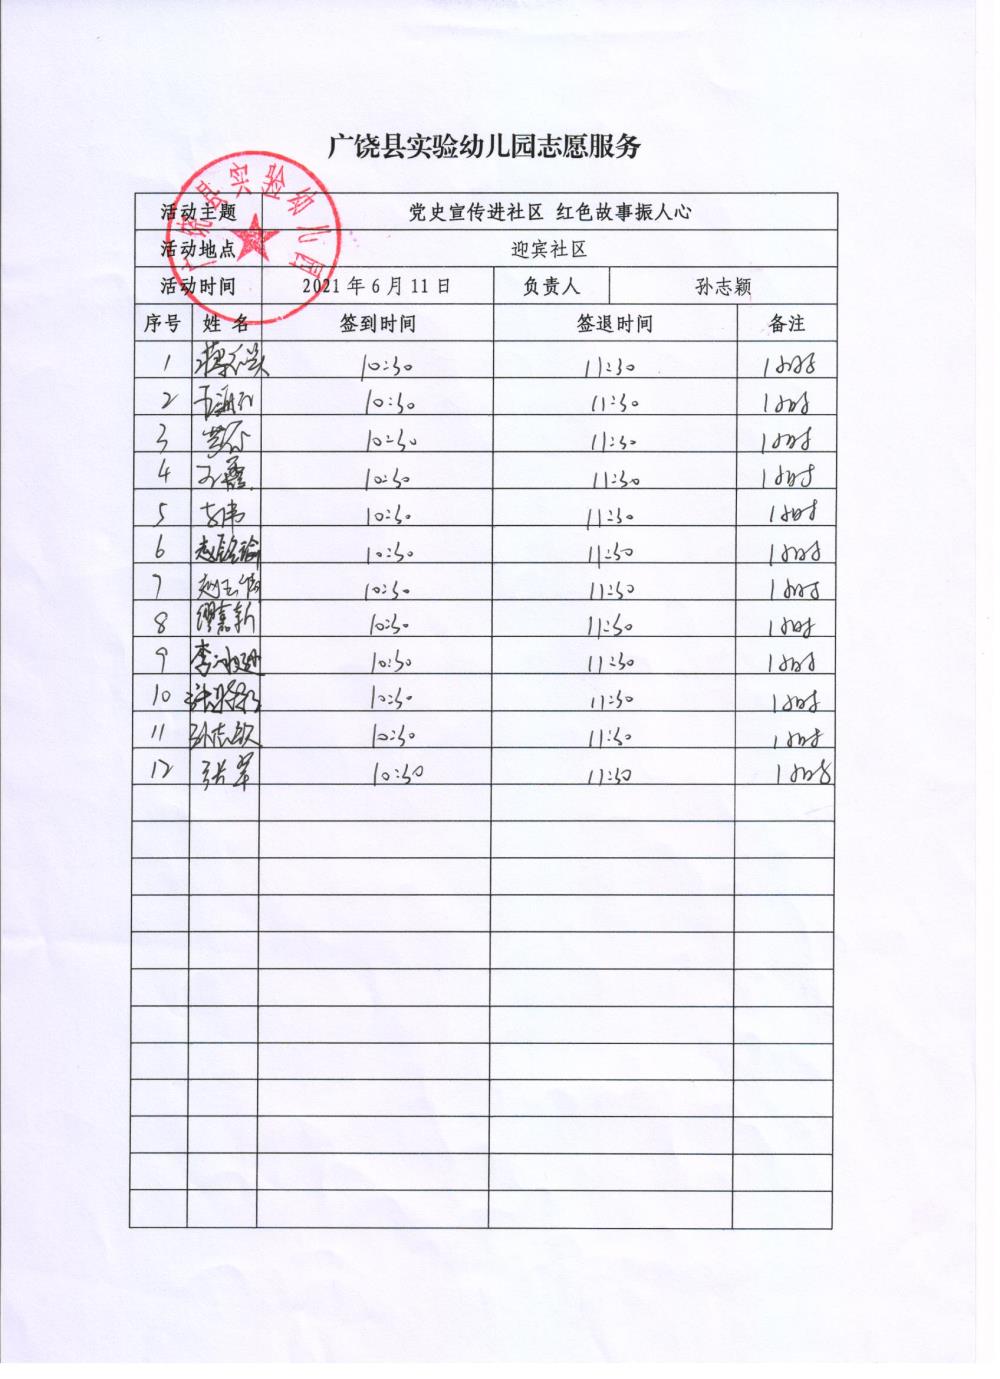 广饶县实验幼儿园志愿服务
广饶县实验幼儿园
活动主题 党史宣传进社区 红色故事振人心
活动地点 迎宾社区
活动时间 2021年6月11日 负责人 孙志颖
序号 姓名 签到时间 签退时间 备注
1 10:30 11:30 1小时
2 10:30 11:30 1小时
3 10:30 11:30 1小时
4 10:30 11:30 1小时
5 10:30 11:30 1小时
6 赵铭瑜 10:30 11:30 1小时
7 10:30 11:30 1小时
8 缪嘉新 10:30 11:30 1小时
9 10:30 11:30 1小时
10 10:30 11:30 1小时
11 10:30 11:30 1小时
12 张翠 10:30 11:30 1小时